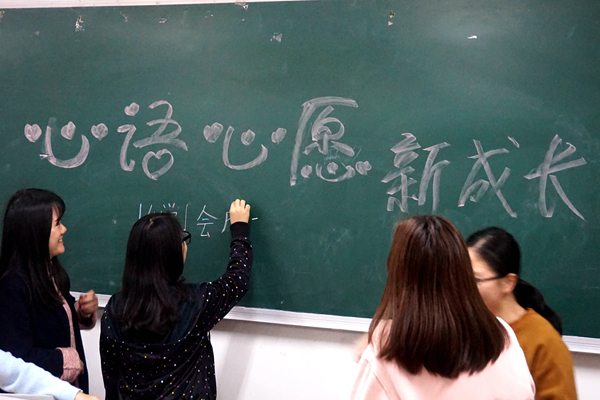 心语心愿新成长
学会